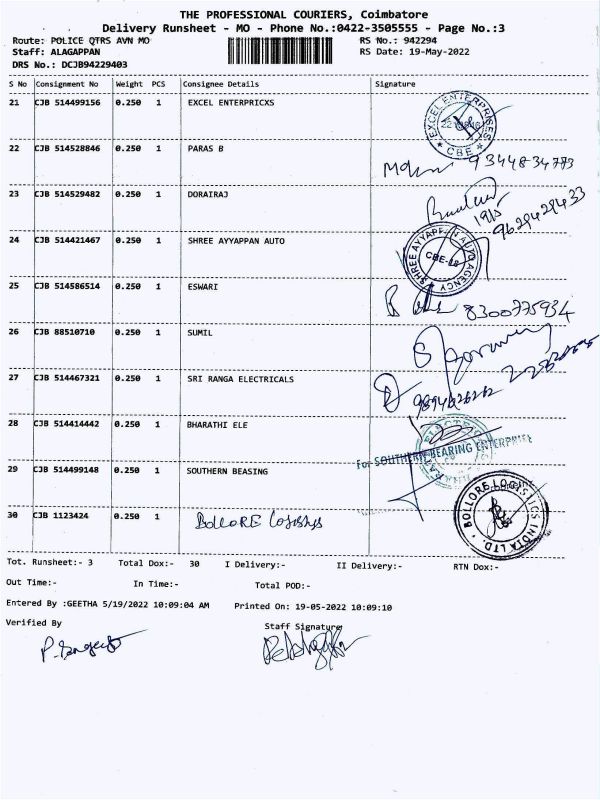 THE PROFESSIONAL COURIERS, Coimbatore
Delivery Runsheet - MO - Phone No.:0422-3505555 - Page No.:3
Route: POLICE QTRS AVN MO RS No.: 942294
Staff: ALAGAPPAN RS Date: 19-May-2022
DRS No.: DCJB94229403
S No Consignment No Weight PCS Consignee Details Signature
21 CJB 514499156 0.250 1 EXCEL ENTERPRICXS
EXCEL ENTERPRISES
CBE
22 CJB 514528846 0.250 1 PARAS B
9344834773
23 CJB 514529482 0.250 1 DORAIRAJ
19/5
9629429433
24 CJB 514421467 0.250 1 SHREE AYYAPPAN AUTO
SHREE AYYAPPAN AUTO AGENCY
25 CJB 514586514 0.250 1 ESWARI
8300775934
26 CJB 88510710 0.250 1 SUMIL
27 CJB 514467321 0.250 1 SRI RANGA ELECTRICALS
28 CJB 514414442 0.250 1 BHARATHI ELE
For SOUTHERN BEARING ENTERPRISE
29 CJB 514499148 0.250 1 SOUTHERN BEASING
BOLLORE LOGISTICS INDIA LTD.
30 CJB 1123424 0.250 1 BOLLORE Logistys
Tot. Runsheet:- 3 Total Dox:- 30 I Delivery:- II Delivery:- RTN Dox:-
Out Time:- In Time:- Total POD:-
Entered By :GEETHA 5/19/2022 10:09:04 AM Printed On: 19-05-2022 10:09:10
Verified By Staff Signature